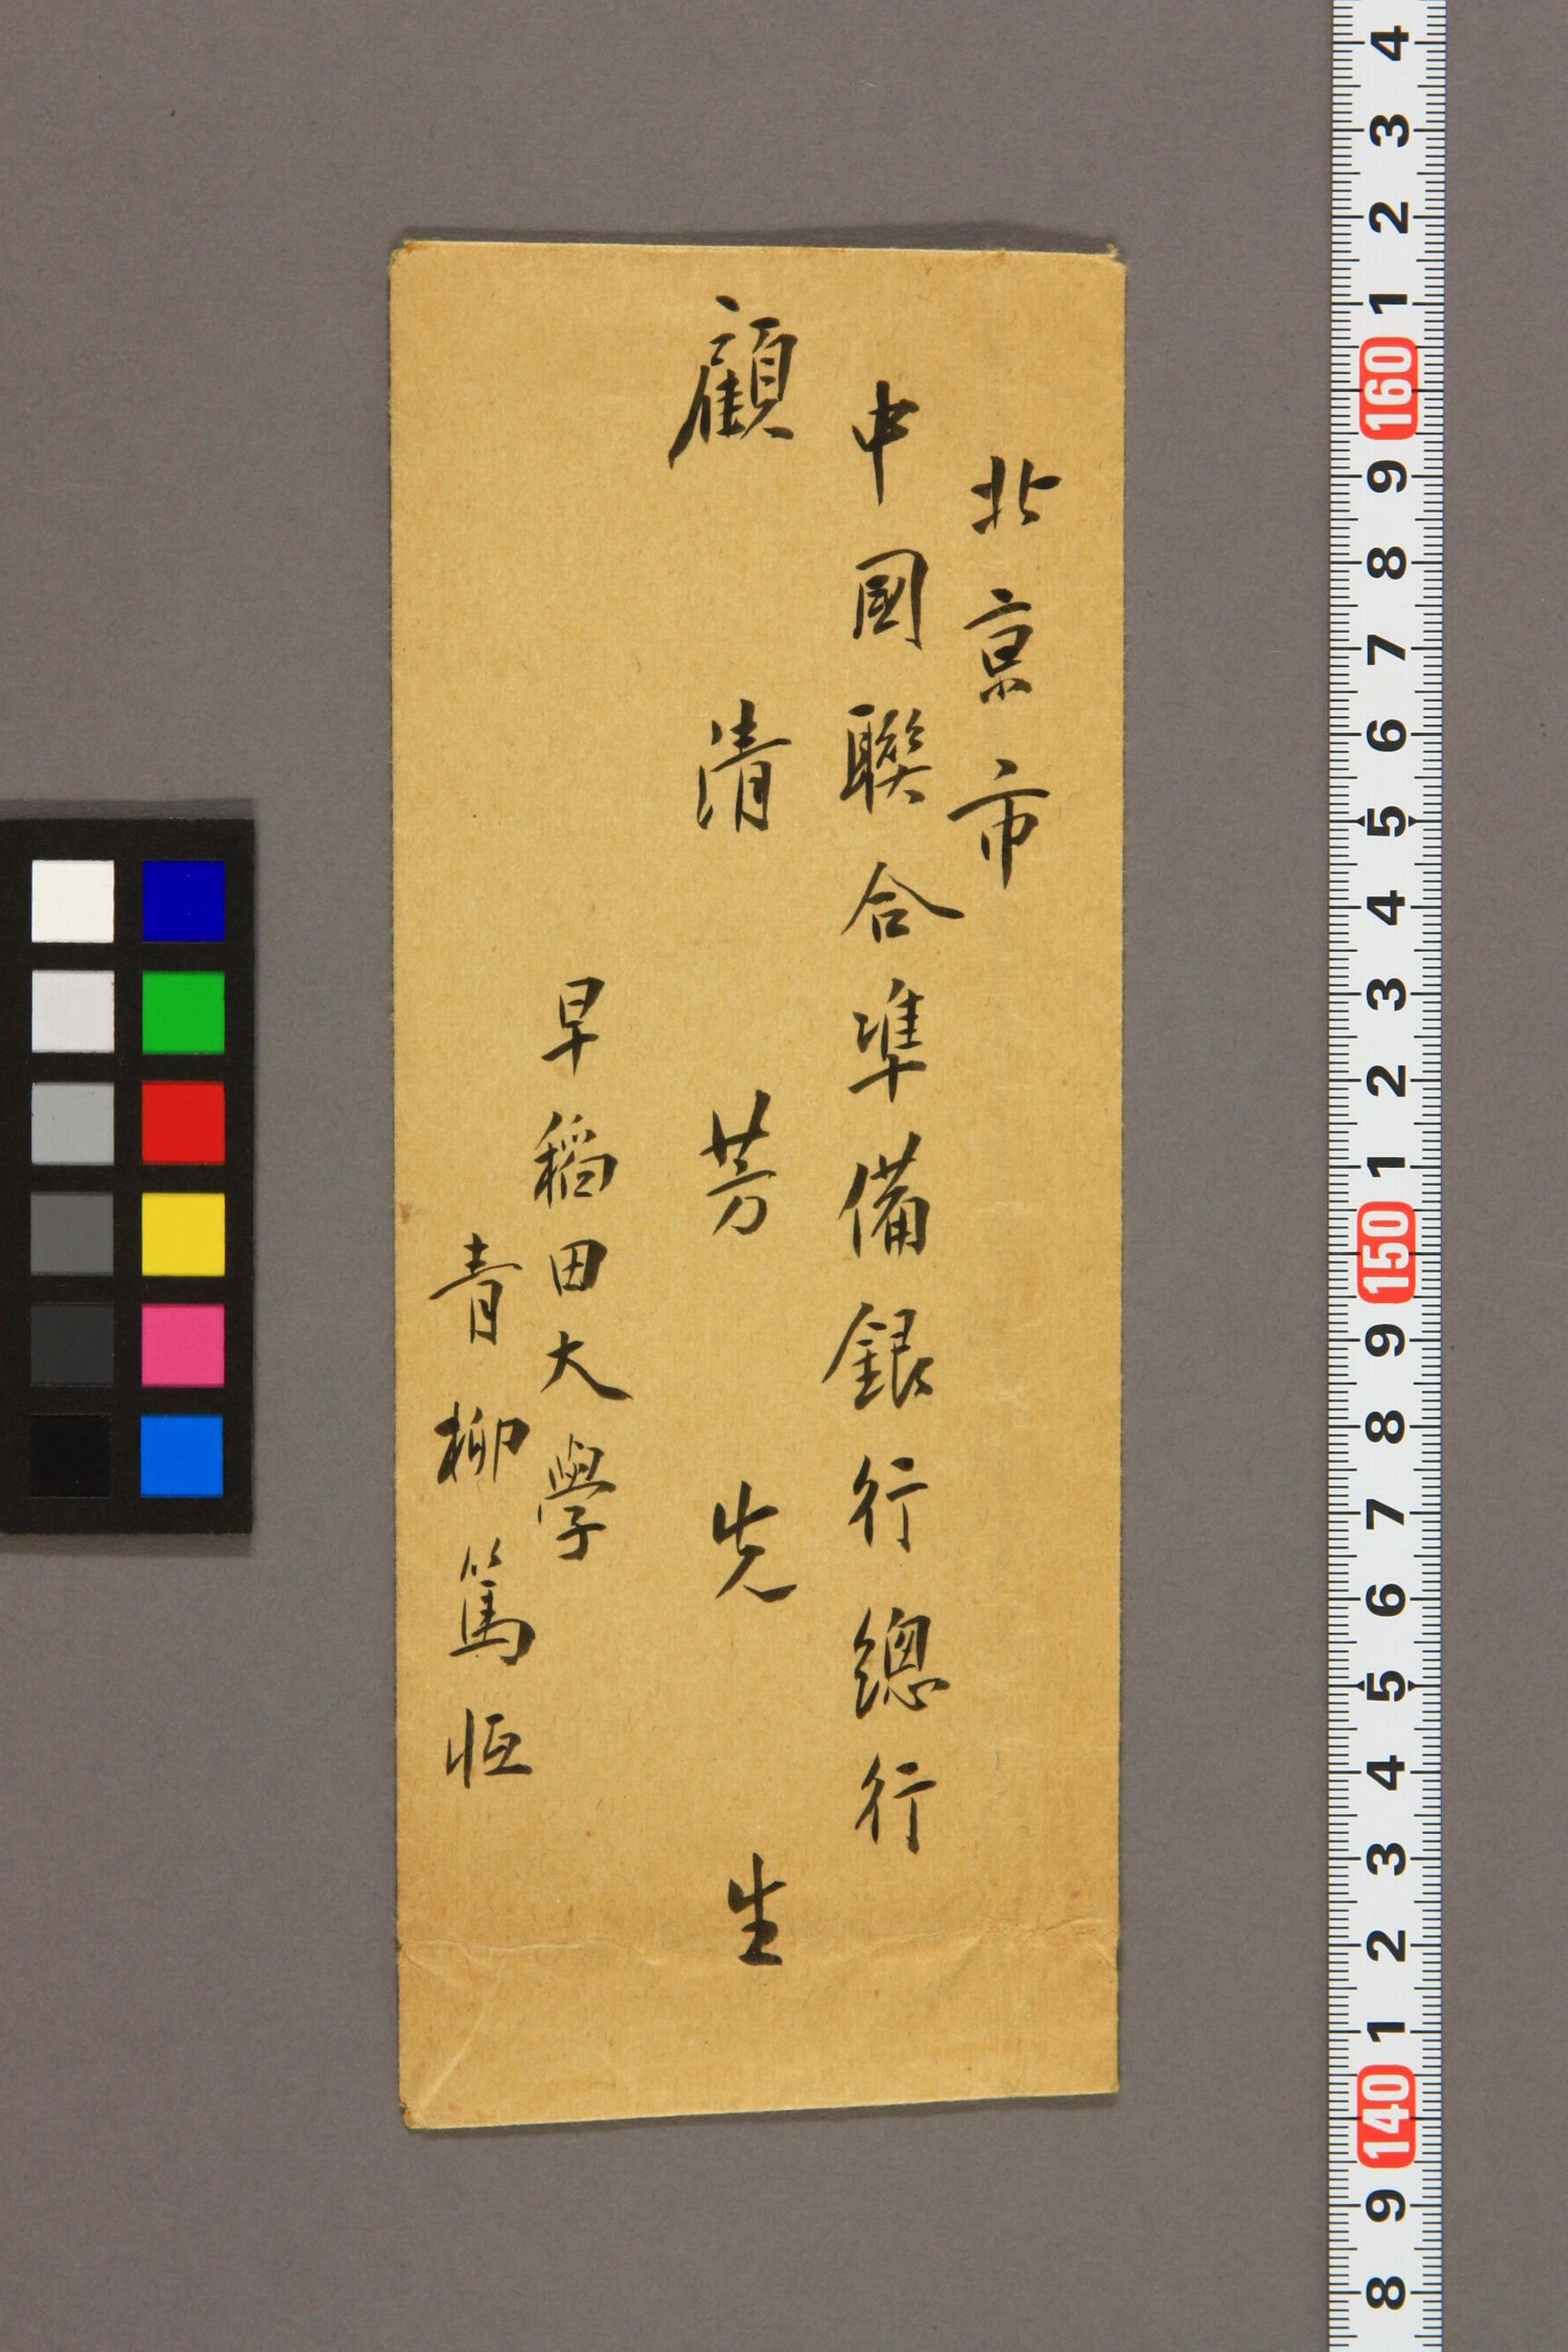 北京市
中國聯合準備銀行總行
顧清芳先生
早稻田大學
青柳篤恒
4
3
2
1
160
9
8
7
6
5
4
3
2
1
150
9
8
7
6
5
4
3
2
1
140
9
8